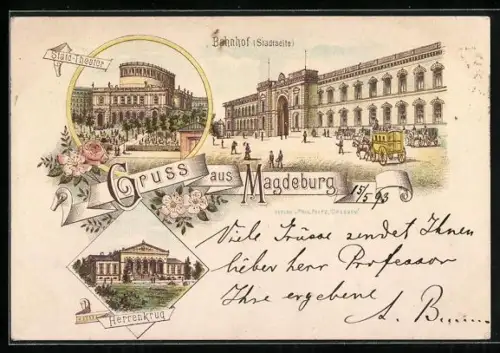 Stadt-Theater
Bahnhof (Stadtseite)
Gruss aus Magdeburg.
15/5 93
Herrenkrug
Viele Grüsse sendet Ihnen
lieber herr Professor
Ihre ergebene
A. B